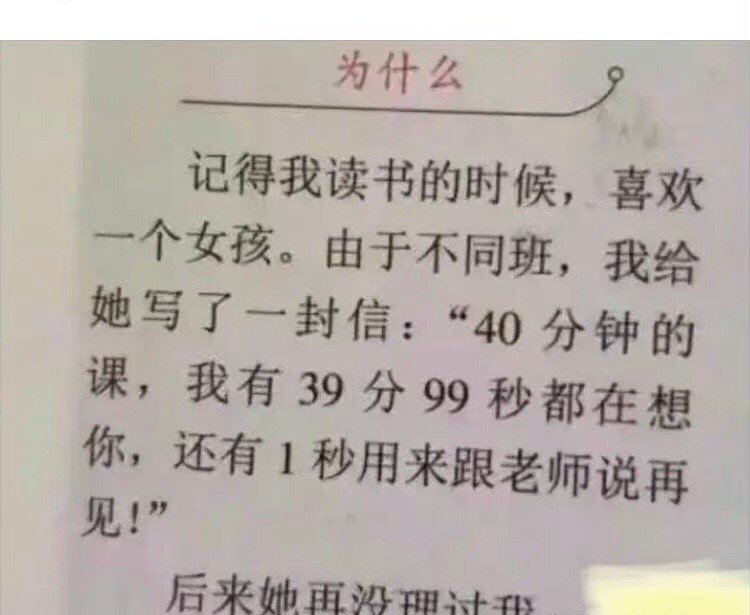 为什么
记得我读书的时候，喜欢
一个女孩。由于不同班，我给
她写了一封信：“40 分钟的
课，我有 39 分 99 秒都在想
你，还有 1 秒用来跟老师说再
见！”
后来她再没理过我